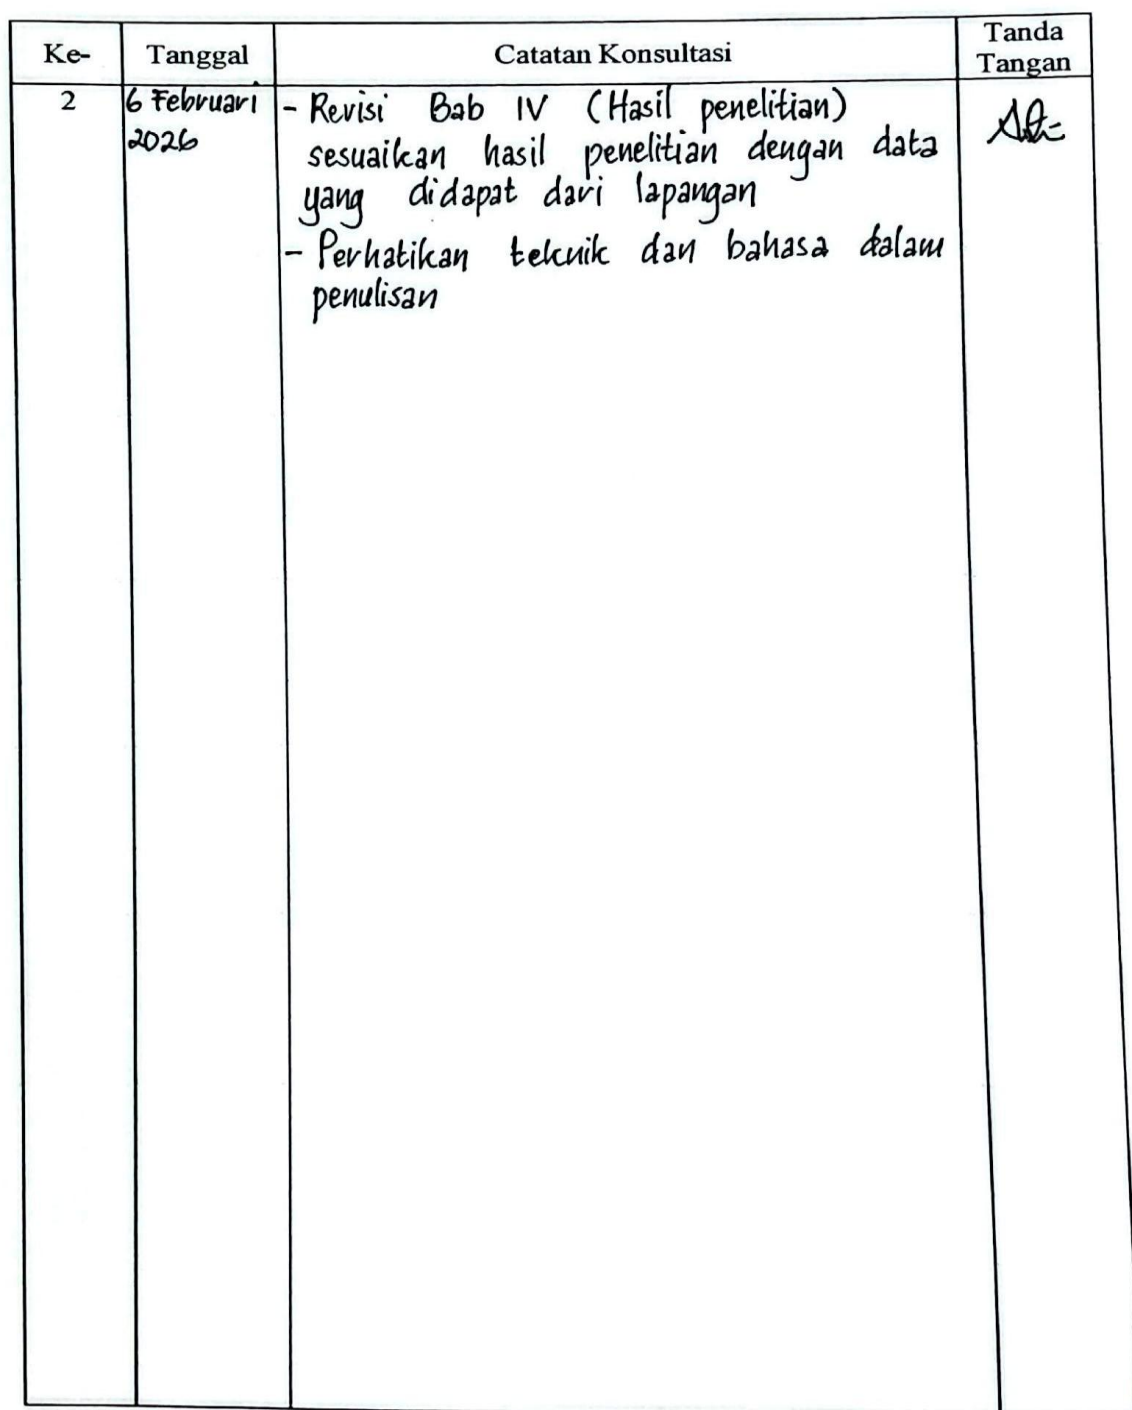 Ke- Tanggal Catatan Konsultasi Tanda Tangan
2 6 Februari 2026
- Revisi Bab IV (Hasil penelitian)
sesuaikan hasil penelitian dengan data
yang didapat dari lapangan
- Perhatikan teknik dan bahasa dalam
penulisan